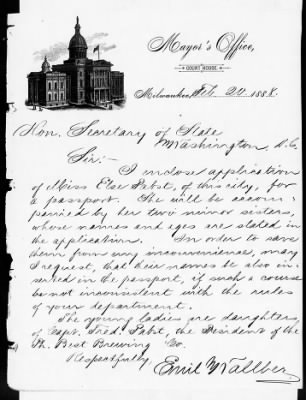 Mayor's Office,
COURT HOUSE.
Milwaukee, Feb. 20 1888.
Hon. Secretary of State
Washington, D.C.
Sir:-
I inclose application
of Miss Else Pabst, of this city, for
a passport. She will be accom-
panied by her two minor sisters,
whose names and ages are stated in
the application. In order to save
them from any inconvenience, may
I request, that their names be also in-
serted in the passport, if such a course
be not inconsistent with the rules
of your department.
The young ladies are daughters,
of Capt. Fred. Pabst, the President of the
Ph. Best Brewing Co.
Respectfully
Emil Wallber